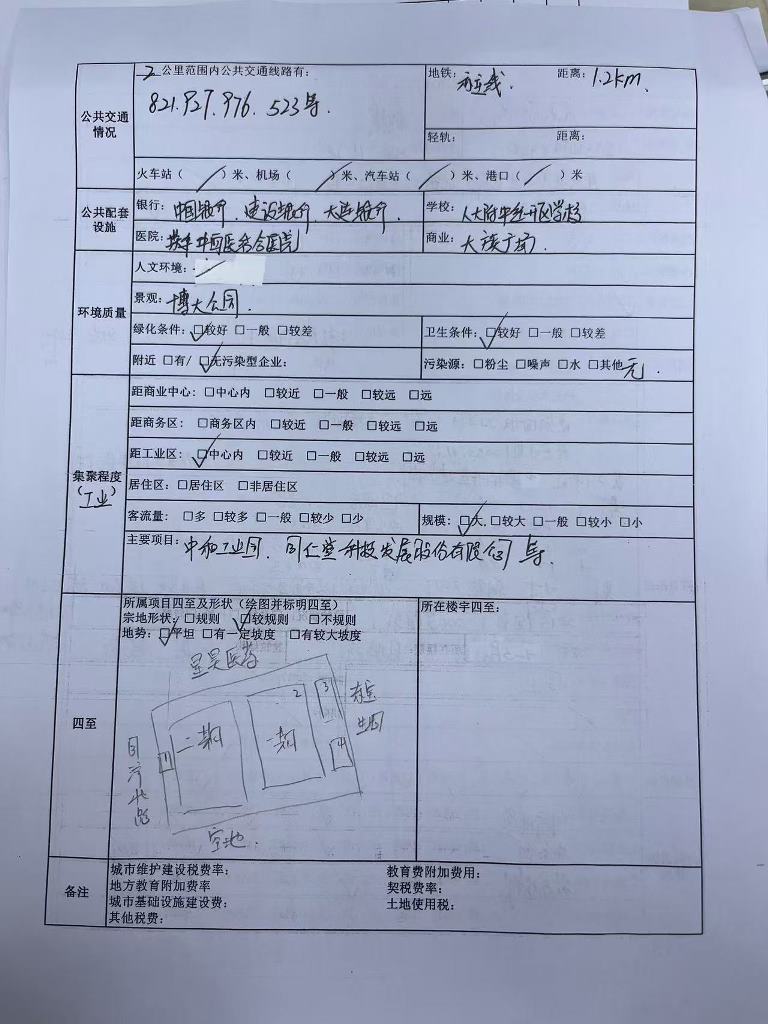 2 公里范围内公共交通线路有：
821. 927. 976. 523等.
地铁：亦庄线. 距离：1.2km.
轻轨： 距离：
公共交通情况
火车站（ ／ ）米、机场（ ／ ）米、汽车站（ ／ ）米、港口（ ／ ）米
公共配套设施
银行：中国银行. 建设银行. 大连银行.
学校：人大附中经开区学校
医院：中西医结合医院
商业：大族广场.
环境质量
人文环境：／
景观：博大公园.
绿化条件：☑较好 □一般 □较差
卫生条件：☑较好 □一般 □较差
附近 □有/ ☑无污染型企业：
污染源：□粉尘 □噪声 □水 □其他 无.
集聚程度
（工业）
距商业中心：□中心内 □较近 □一般 □较远 □远
距商务区：□商务区内 □较近 □一般 □较远 □远
距工业区：☑中心内 □较近 □一般 □较远 □远
居住区：□居住区 □非居住区
客流量：□多 □较多 □一般 □较少 □少
规模：☑大 □较大 □一般 □较小 □小
主要项目：中和工业园. 同仁堂科技发展股份有限公司 等.
四至
所属项目四至及形状（绘图并标明四至）
宗地形状：□规则 ☑较规则 □不规则
地势：☑平坦 □有一定坡度 □有较大坡度
所在楼宇四至：
星昊医药
二期
一期
1
2
3
4
空地.
备注
城市维护建设税费率：
教育费附加费用：
地方教育附加费率
契税费率：
城市基础设施建设费：
土地使用税：
其他税费：